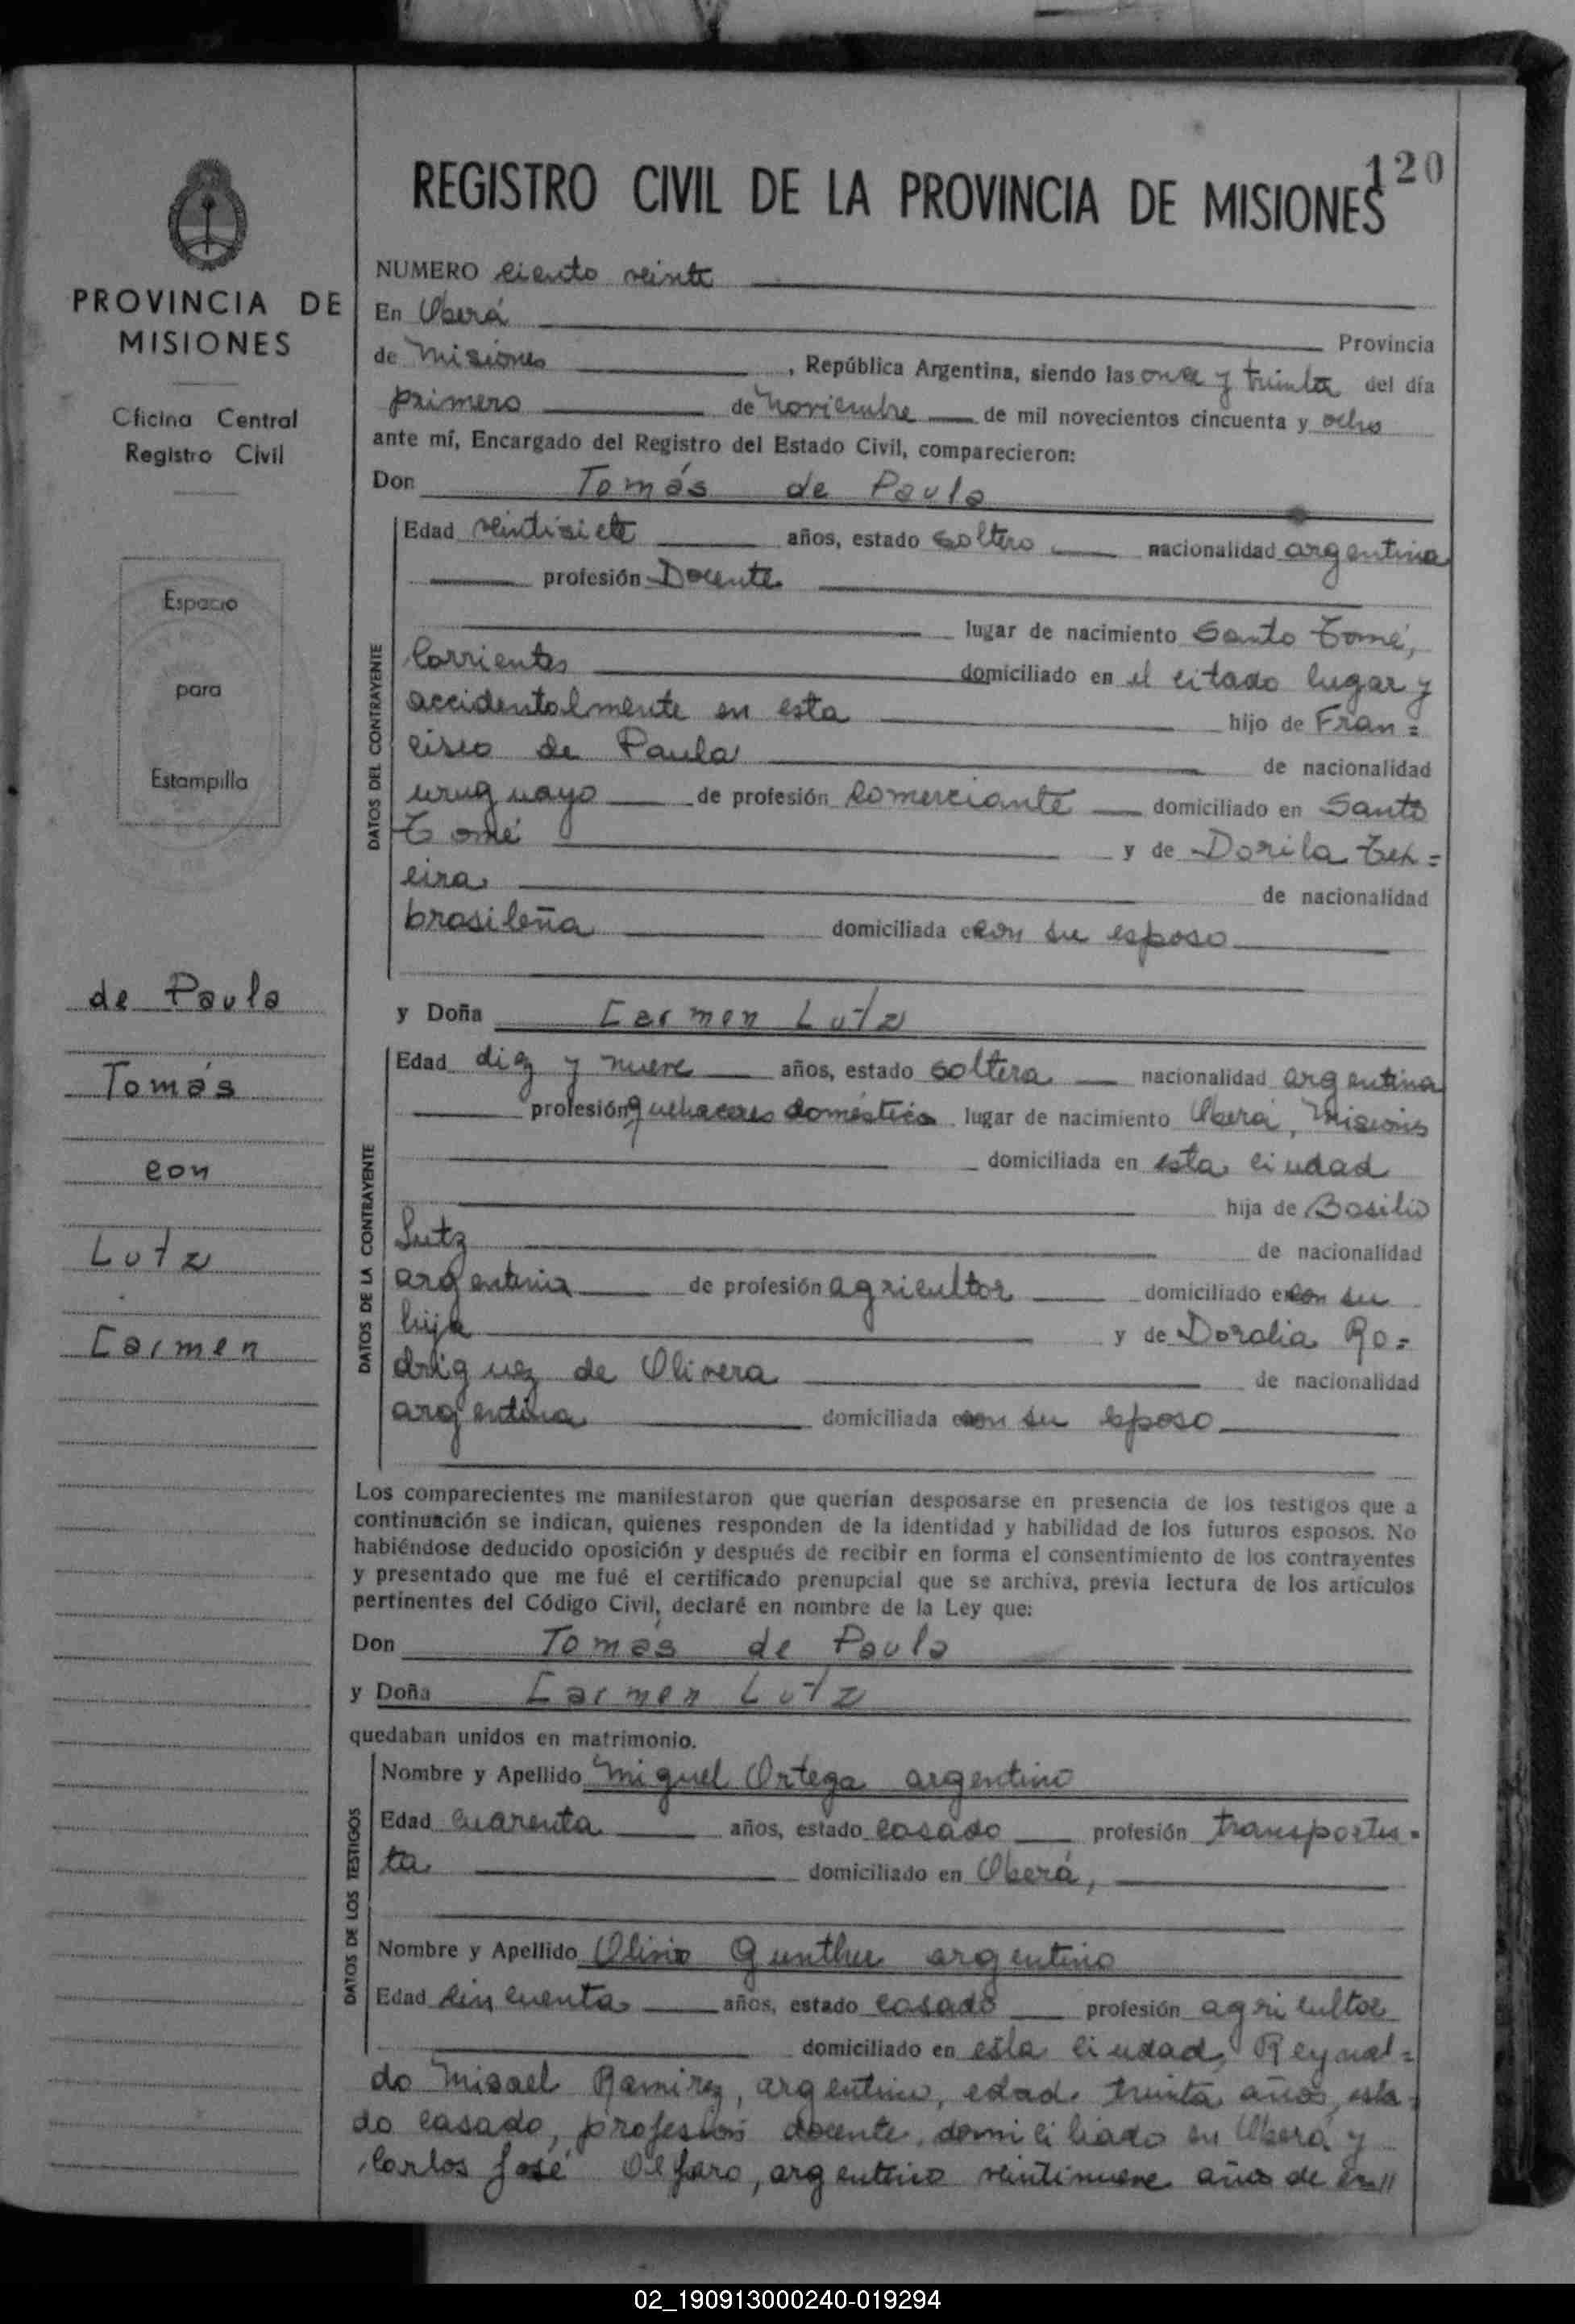 120
REGISTRO CIVIL DE LA PROVINCIA DE MISIONES
PROVINCIA DE
MISIONES
Oficina Central
Registro Civil
Espacio
para
Estampilla
de Paula
Tomás
con
Lutz
Carmen
NUMERO ciento veinte
En Oberá Provincia
de Misiones, República Argentina, siendo las once y treinta del día
primero de Noviembre de mil novecientos cincuenta y ocho
ante mí, Encargado del Registro del Estado Civil, comparecieron:
Don Tomás de Paula
DATOS DEL CONTRAYENTE
Edad veintisiete años, estado soltero nacionalidad argentina
profesión Docente
lugar de nacimiento Santo Tomé,
Corrientes domiciliado en el citado lugar y
accidentalmente en esta hijo de Fran=
cisco de Paula de nacionalidad
uruguayo de profesión comerciante domiciliado en Santo
Tomé y de Dorila Tex=
eira de nacionalidad
brasileña domiciliada con su esposo
y Doña Carmen Lutz
DATOS DE LA CONTRAYENTE
Edad diez y nueve años, estado soltera nacionalidad argentina
profesión quehaceres domésticos lugar de nacimiento Oberá, Misiones
domiciliada en esta ciudad
hija de Basilio
Lutz de nacionalidad
argentina de profesión agricultor domiciliado con su
hija y de Doralia Ro=
driguez de Olivera de nacionalidad
argentina domiciliada con su esposo
Los comparecientes me manifestaron que querían desposarse en presencia de los testigos que a
continuación se indican, quienes responden de la identidad y habilidad de los futuros esposos. No
habiéndose deducido oposición y después de recibir en forma el consentimiento de los contrayentes
y presentado que me fué el certificado prenupcial que se archiva, previa lectura de los artículos
pertinentes del Código Civil, declaré en nombre de la Ley que:
Don Tomás de Paula
y Doña Carmen Lutz
quedaban unidos en matrimonio.
DATOS DE LOS TESTIGOS
Nombre y Apellido Miguel Ortega argentino
Edad cuarenta años, estado casado profesión transportis=
ta domiciliado en Oberá,
Nombre y Apellido Olivio Gunther argentino
Edad cincuenta años, estado casado profesión agricultor
domiciliado en esta ciudad, Reynal=
do Misael Ramirez, argentino, edad treinta años, esta=
do casado, profesión docente, domiciliado en Oberá y
Carlos José Alfaro, argentino veintinueve años de e
02_190913000240-019294